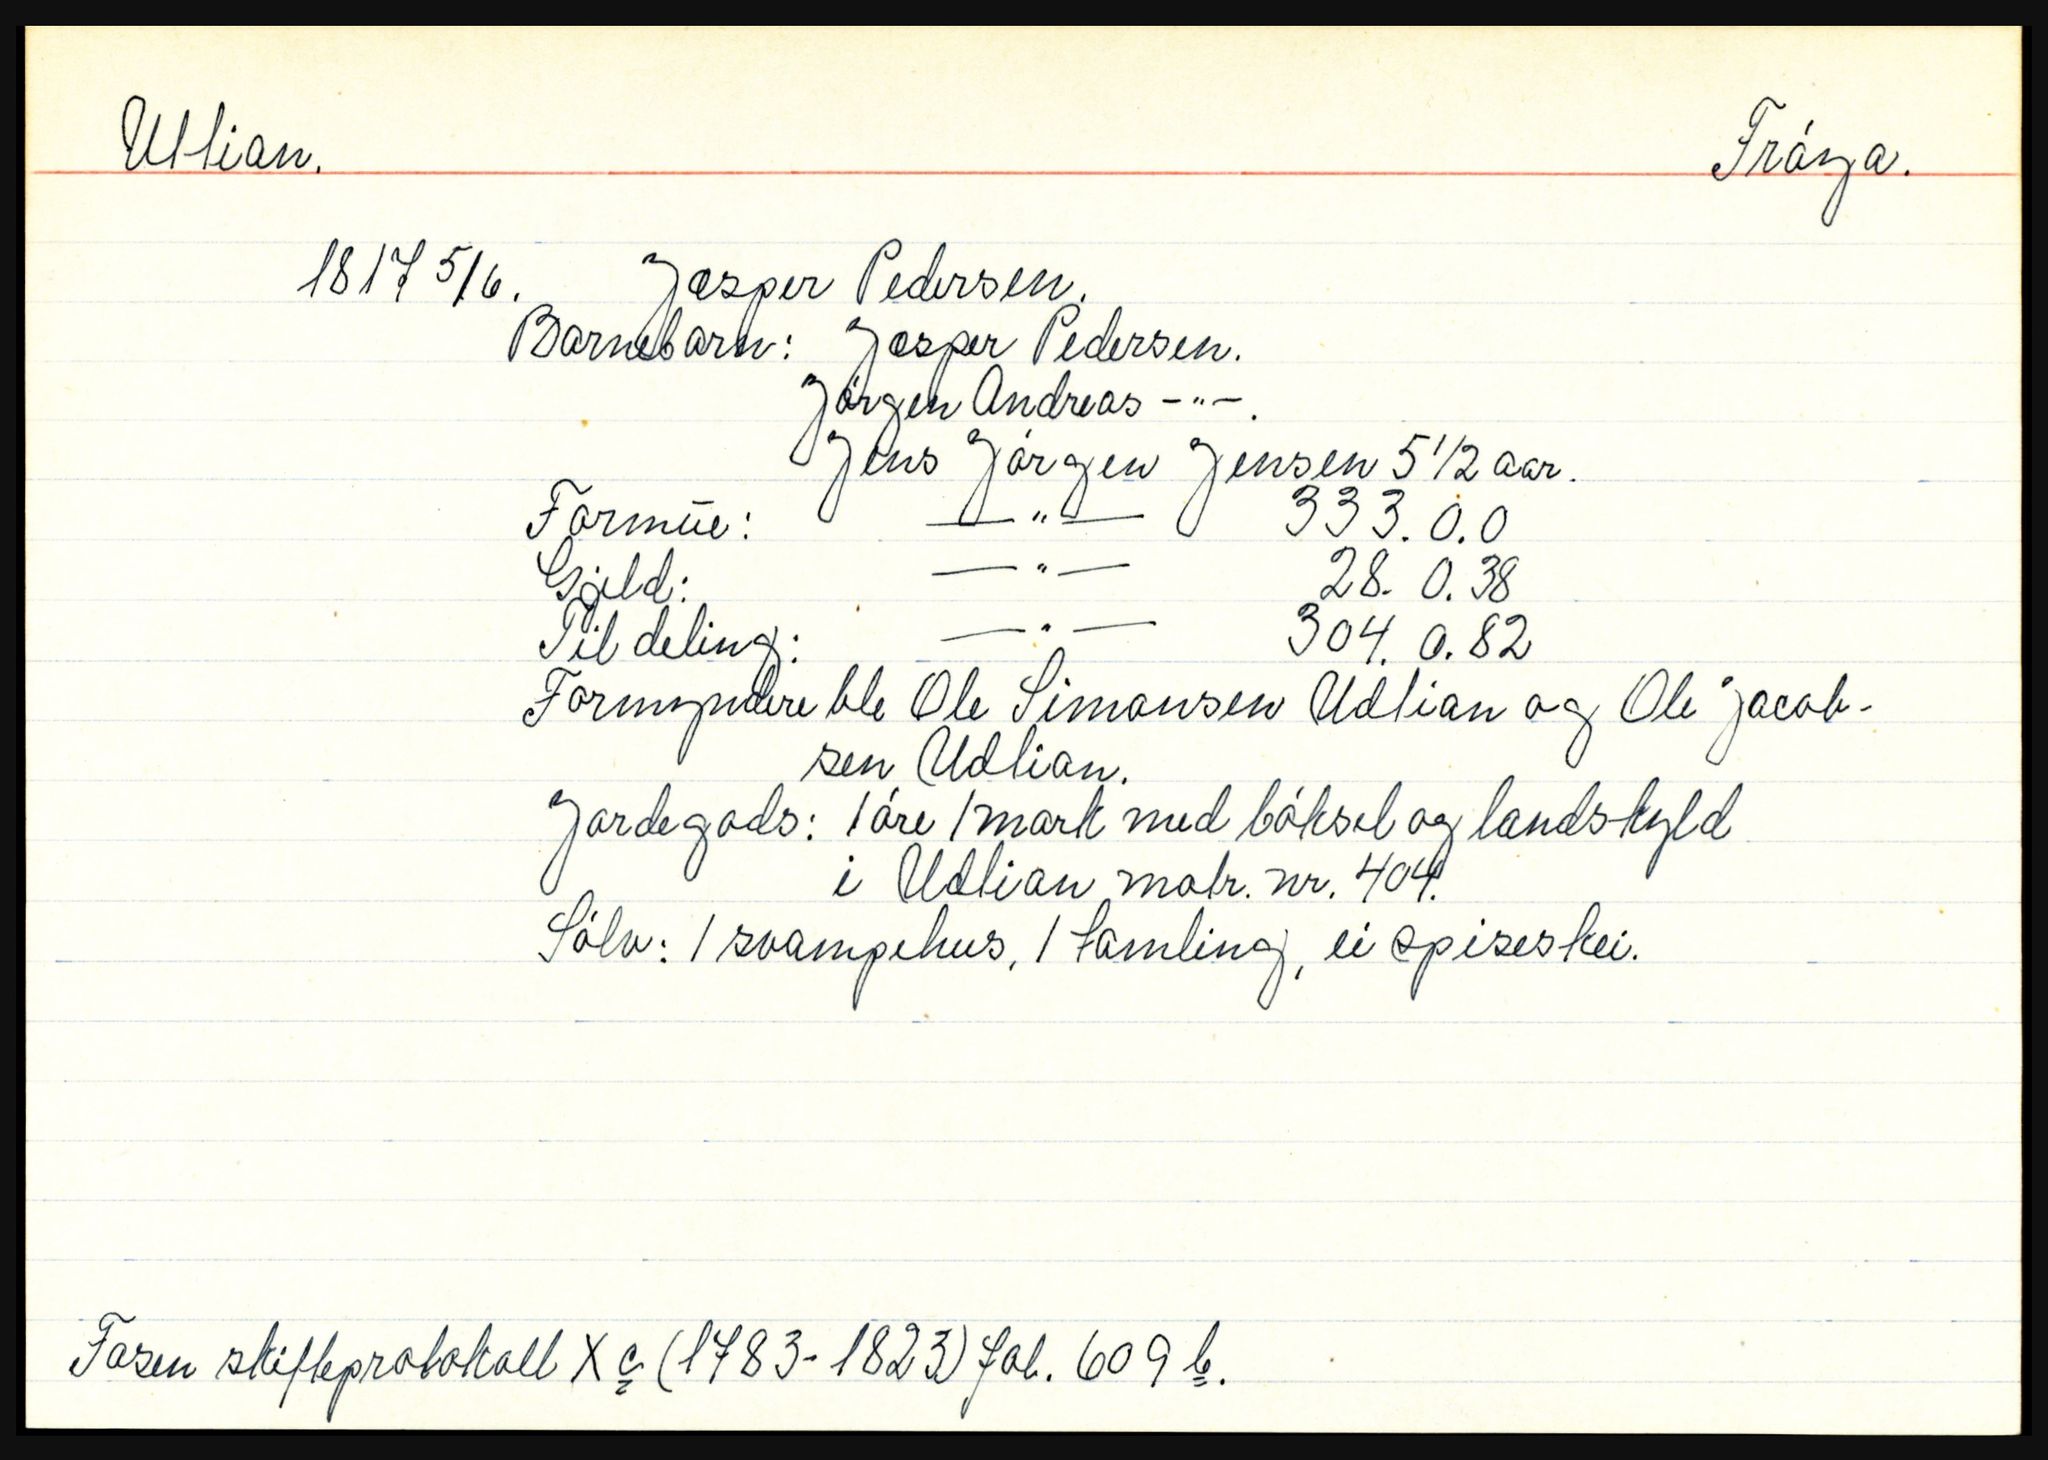 Utlian. Frøya.
1817 5/6. Jesper Pedersen.
Barnebarn: Jesper Pedersen.
Jørgen Andreas -"-.
Jens Jørgen Jensen 5 1/2 aar.
Formue: —"— 333.0.0
Gjeld: —"— 28.0.38
Til deling: —"— 304.0.82
Formyndere ble Ole Simonsen Udlian og Ole Jacob-
sen Udlian.
Jordegods: 1 øre 1 mark med bøksel og landskyld
i Udlian matr. nr. 404.
Sølv: 1 svampehus, 1 tamling, ei spiseskei.
Fosen skifteprotokoll X c (1783-1823) fol. 609 b.